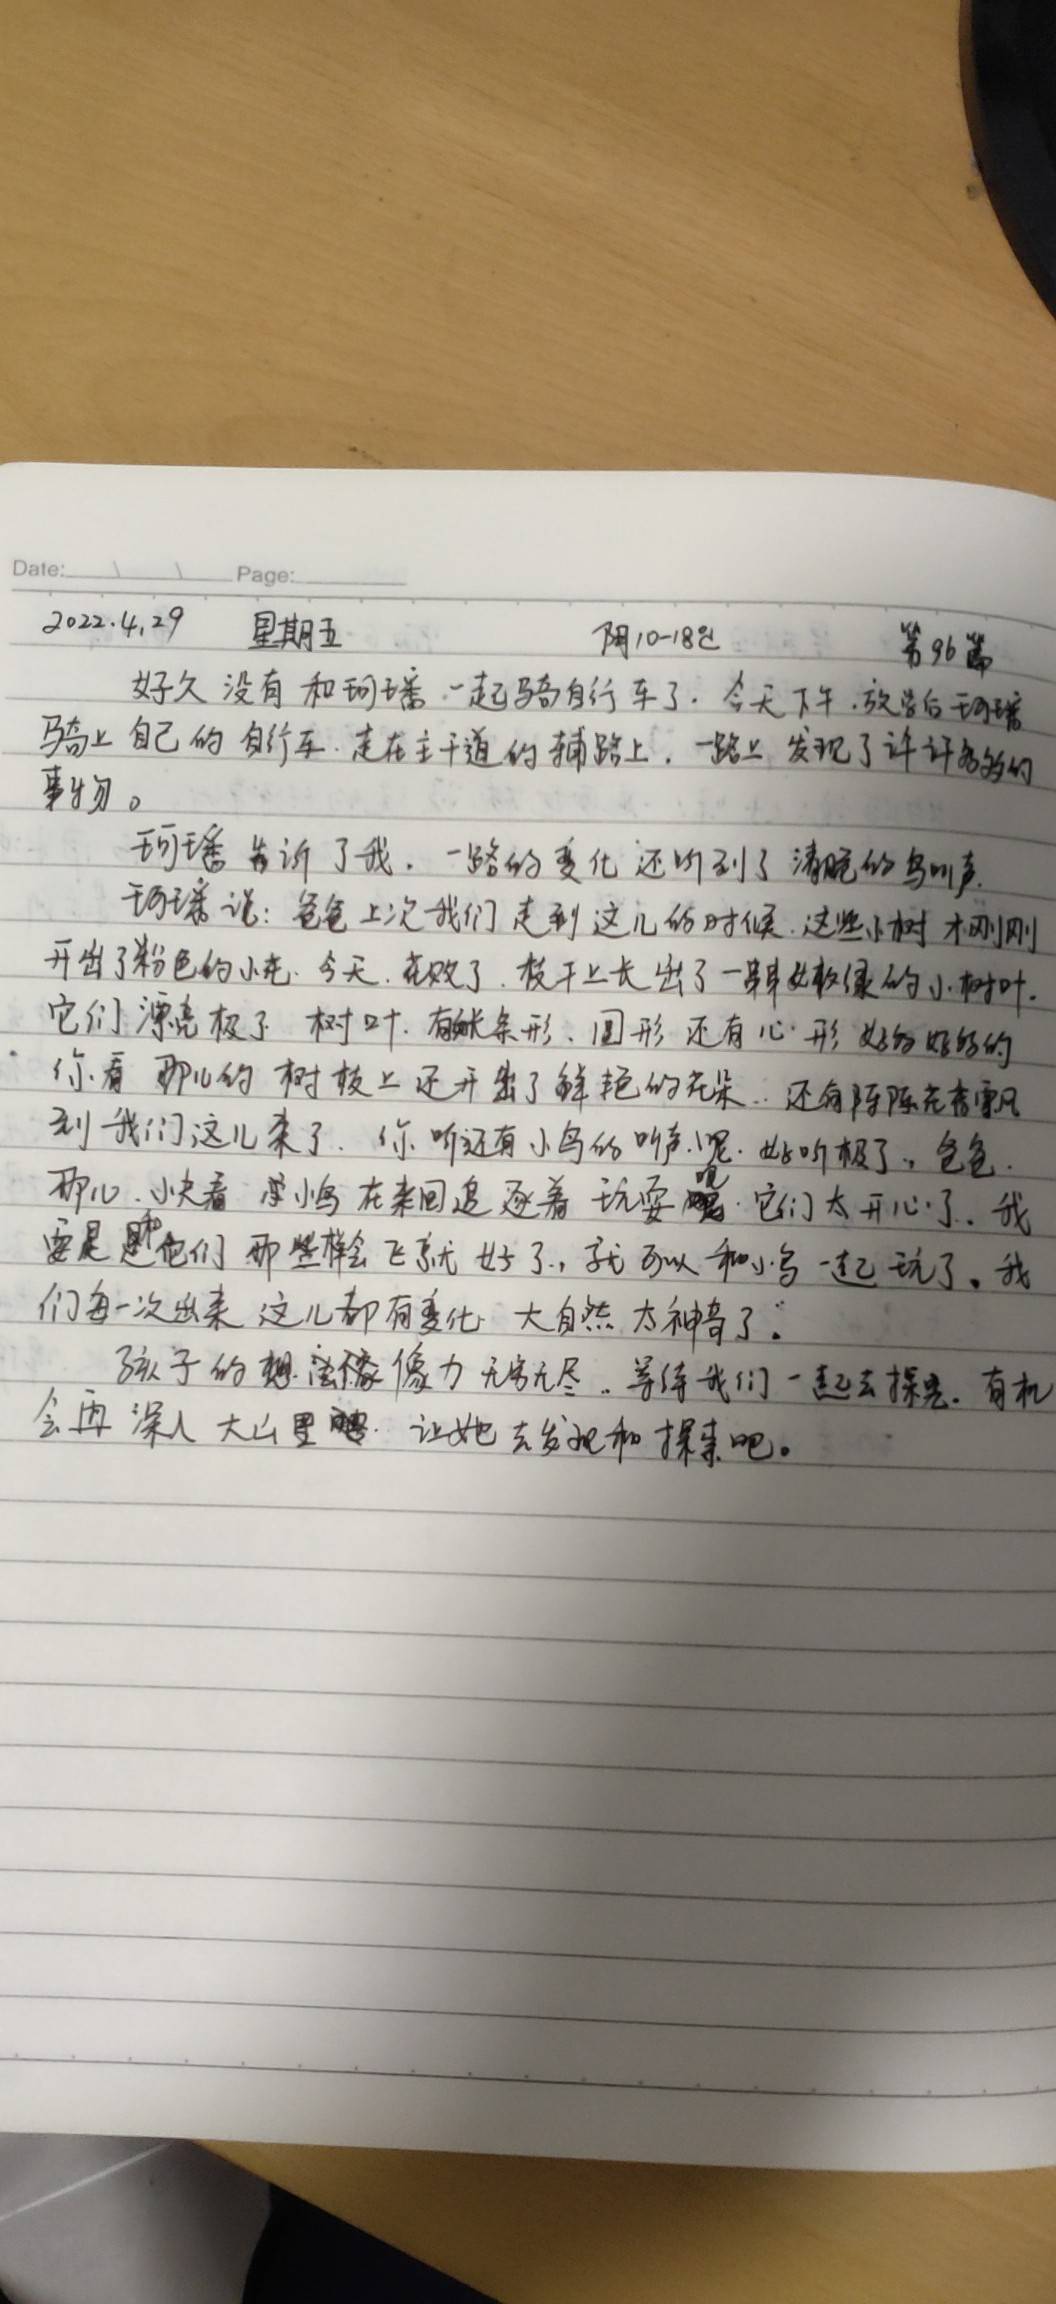 Date: Page:
2022.4.29 星期五 阴10-18℃ 第96篇
好久没有和珂璠一起骑自行车了.今天下午.放学后珂璠
骑上自己的自行车.走在主干道的辅路上,一路上发现了许许多多的
事物。
珂璠告诉了我.一路的变化还听到了清脆的鸟叫声.
珂璠说:爸爸上次我们走到这儿的时候.这些小树才刚刚
开出了粉色的小花.今天.花败了.枝干上长出了一串串嫩绿的小树叶.
它们漂亮极了 树叶.有长条形、圆形还有心形 好多好多的
你看那儿的树枝上还开出了鲜艳的花朵..还有阵阵花香飘
到我们这儿来了.你听还有小鸟的叫声呢.好听极了,爸爸.
那儿.快看 小鸟在来回追逐着玩耍呢.它们太开心了.我
要是和他们那样会飞就好了,就可以和小鸟一起玩了。我
们每一次出来这儿都有变化 大自然太神奇了。
孩子的想像力无穷无尽..等待我们一起去探索.有机
会再深入大山里 让她去发现和探索吧。